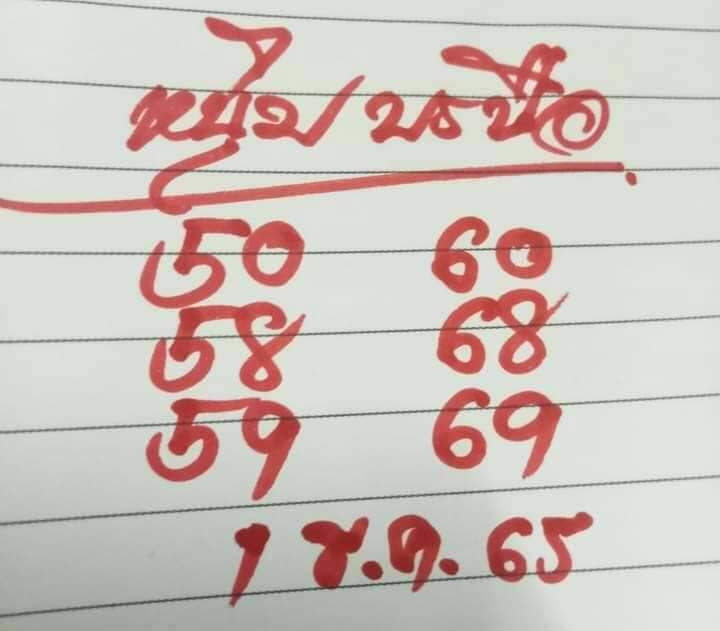 หนุ่ม บรบือ
50 60
58 68
59 69
1 ธ.ค. 65